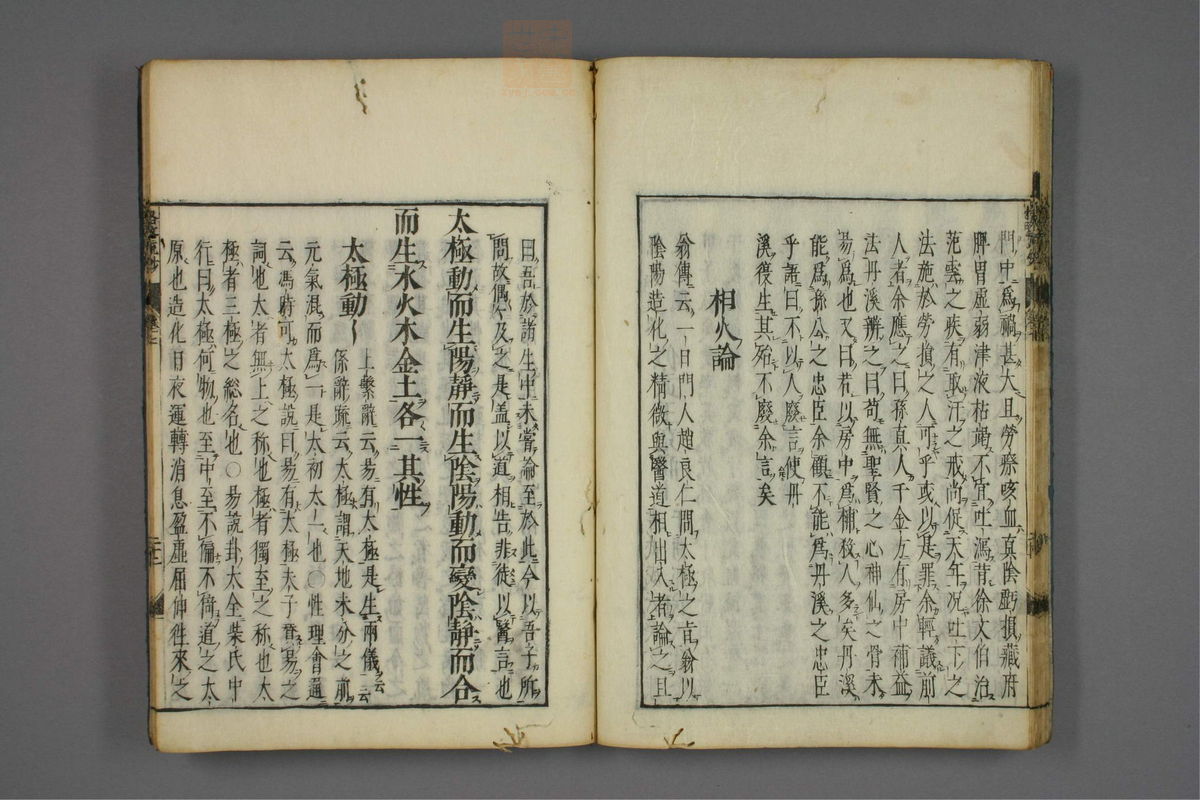 門中爲禍甚大且勞瘵咳血真陰虧損藏府
脾胃虛弱津液枯竭不宜吐瀉昔徐文伯治
范雲之疾有取汗之戒尚促天年况吐下之
法施於勞損之人可乎或以是罪余輕議前
人者余應之曰孫真人千金方有房中補益
法丹溪辨之曰苟無聖賢之心神仙之骨未
易爲也又曰若以房中爲補殺人多矣丹溪
能爲孫公之忠臣余顧不能爲丹溪之忠臣
乎語曰不以人廢言使丹
溪復生其殆不廢余言矣
相火論
翁傳云一日門人趙良仁問太極之旨翁以
陰陽造化之精微與醫道相出入者論之且
曰吾於諸生中未嘗論至於此今以吾子所
問故偶及之是盖以道相告非徒以醫言也
太極動而生陽靜而生陰陽動而變陰靜而合
而生水火木金土各一其性
太極動
上繫辭云易有太極是生兩儀云云
係辭疏云太極謂天地未分之前
元氣混而爲一是太初太一也○性理會通
云馮時可太極說曰易有太極朱子賛易之
詞也太者無上之称也極者獨至之称也太
極者三極之総名也○易說卦大全葉氏中
行曰太極何物也至中至不偏不倚道之太
原也造化日夜運轉消息盈虛屈伸徃來之